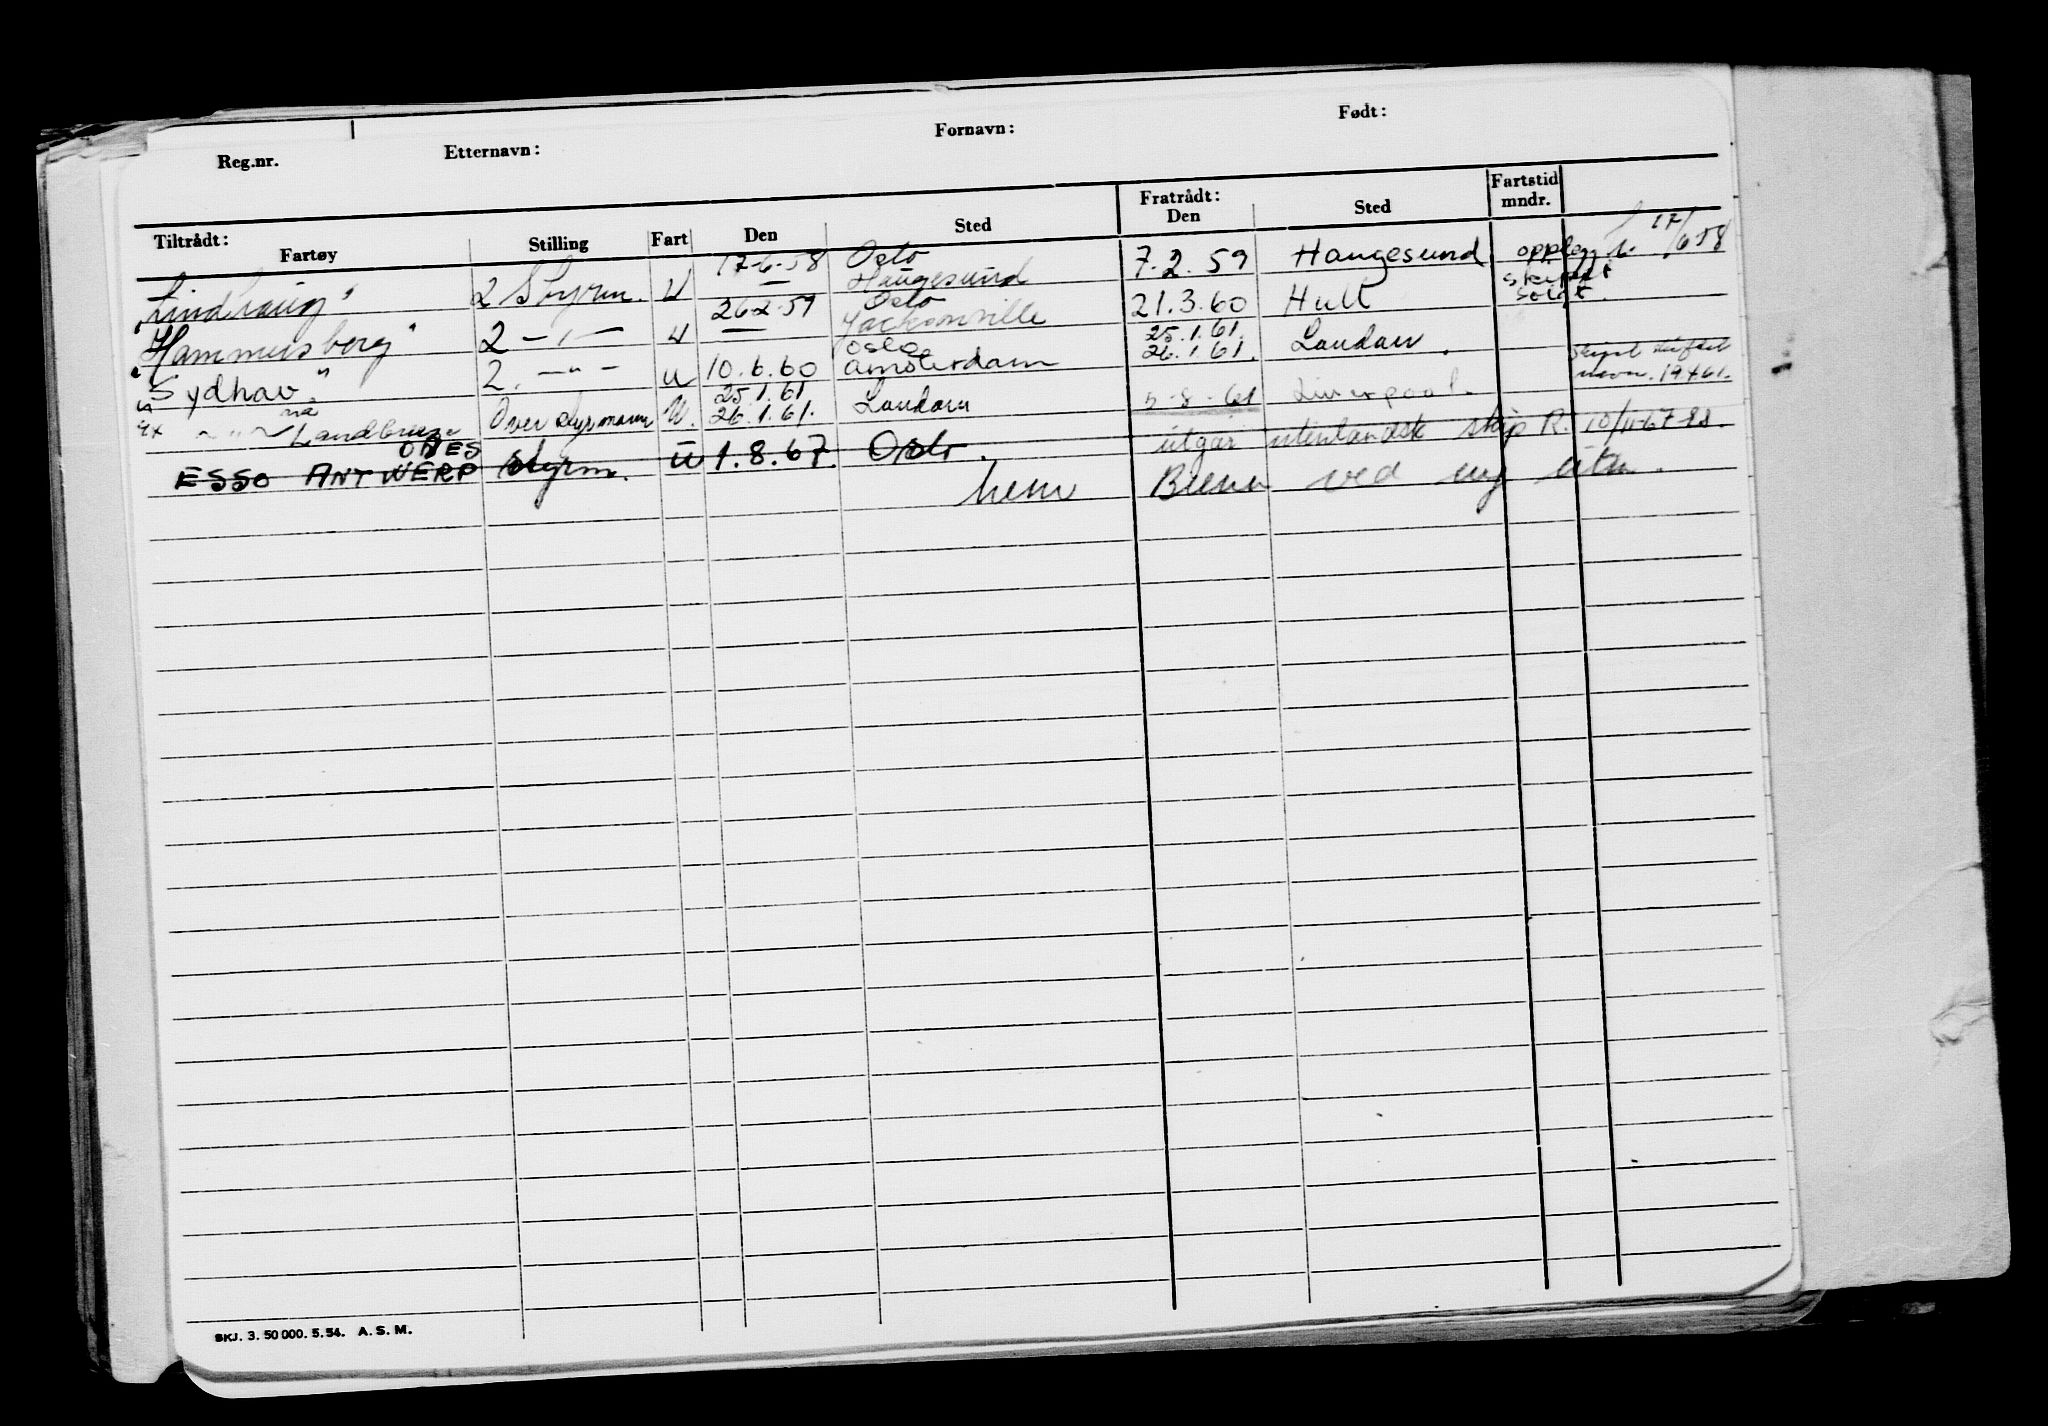 Reg.nr. Etternavn: Fornavn: Født:
Tiltrådt: Fratrådt: Fartstid
Fartøy Stilling Fart Den Sted Den Sted mndr.
17-6-58 Oslo 17/6 58
"Lindhaug" 2 Styrm. U — Haugesund 7.2.59 Haugesund opplegg
26-2-59 Oslo skipet solgt.
"Hammersberg" 2 —"— U — Jacksonville 21.3.60 Hull
Oslo 25.1.61.
"Sydhav" 2. —"— U 10.6.60 Amsterdam 26.1.61. Landau.
25.1.61 skipet
ex —"— nå Landbreeze Overstyrmann U. 26.1.61. Landau 5-8-61 Liverpool. navn. 19 61.
ESSO ANTWERP Styrm. U 1.8.67. Oslo. utgår utenlandsk skip R. 10/11-67
ved ny
SKJ. 3. 50 000. 5. 54. A. S. M.